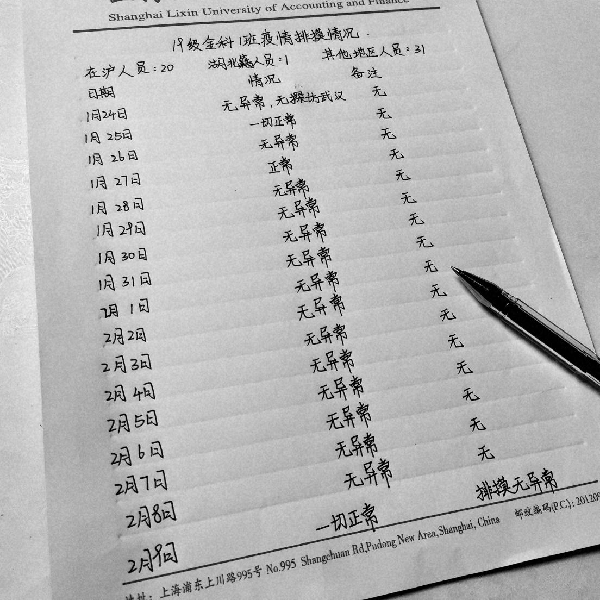 Shanghai Lixin University of Accounting and Finance
19级金科1班疫情排摸情况.
在沪人员:20 湖北籍人员:1 其他地区人员:31
日期 情况 备注
1月24日 无异常,无 武汉 无
1月25日 一切正常 无
1月26日 无异常 无
1月27日 正常 无
1月28日 无异常 无
1月29日 无异常 无
1月30日 无异常 无
1月31日 无异常 无
2月1日 无异常 无
2月2日 无异常 无
2月3日 无异常 无
2月4日 无异常 无
2月5日 无异常 无
2月6日 无异常 无
2月7日 无异常 无
2月8日 无异常 无
2月9日 一切正常 排摸无异常
地址: 上海浦东上川路995号 No.995 Shangchuan Rd,Pudong New Area,Shanghai, China 邮政编码(P.C.): 201209